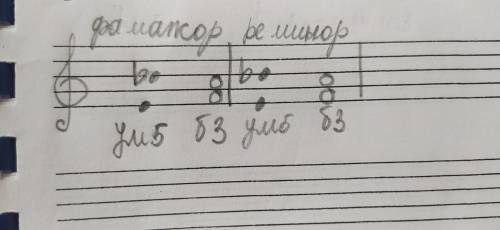 фа мажор ре минор
ум5 б3 ум5 б3